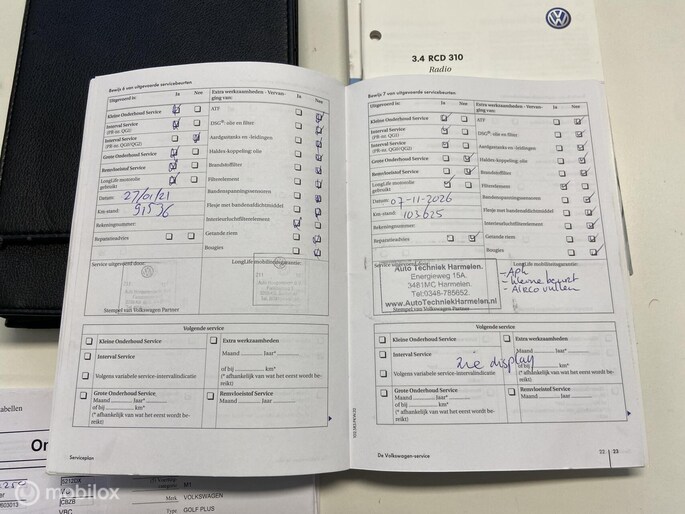 3.4 RCD 310
Radio
Bewijs 6 van uitgevoerde servicebeurten
Uitgevoerd is: Ja Nee
Kleine Onderhoud Service
Interval Service
(PR-nr. QG1)
Interval Service
(PR-nr. QG0/QG2)
Grote Onderhoud Service
Remvloeistof Service
LongLife motorolie
gebruikt
Datum: 27/01/21
Km-stand: 91536
Rekeningnummer:
Reparatieadvies
Extra werkzaamheden - Vervanging van: Ja Nee
ATF
DSG®: olie en filter:
Aardgastanks en -leidingen:
Haldex-koppeling: olie
Brandstoffilter
Filterelement
Bandenspanningssensoren
Flesje met bandenafdichtmiddel
Interieurluchtfilterelement
Getande riem
Bougies
Service uitgevoerd door:
LongLife mobiliteitsgarantie:
Stempel van Volkswagen Partner
Volgende service
Kleine Onderhoud Service
Interval Service
Volgens variabele service-intervalindicatie
Grote Onderhoud Service
Maand Jaar*
of bij km*
(* afhankelijk van wat het eerst wordt bereikt)
Extra werkzaamheden
Maand Jaar*
of bij km*
(* afhankelijk van wat het eerst wordt bereikt)
Remvloeistof Service
Maand Jaar
Serviceplan
Bewijs 7 van uitgevoerde servicebeurten
Uitgevoerd is: Ja Nee
Kleine Onderhoud Service
Interval Service
(PR-nr. QG1)
Interval Service
(PR-nr. QG0/QG2)
Grote Onderhoud Service
Remvloeistof Service
LongLife motorolie
gebruikt
Datum: 07-11-2026
Km-stand: 103625
Rekeningnummer:
Reparatieadvies
Extra werkzaamheden - Vervanging van: Ja Nee
ATF
DSG®: olie en filter:
Aardgastanks en -leidingen:
Haldex-koppeling: olie
Brandstoffilter
Filterelement
Bandenspanningssensoren
Flesje met bandenafdichtmiddel
Interieurluchtfilterelement
Getande riem
Bougies
Service uitgevoerd door:
Auto Techniek Harmelen.
Energieweg 15A.
3481MC Harmelen.
Tel:0348-785652.
www.AutoTechniekHarmelen.nl
Stempel van Volkswagen Partner
LongLife mobiliteitsgarantie:
- Apk
- kleine beurt
- Airco vullen
Volgende service
Kleine Onderhoud Service
Interval Service
Volgens variabele service-intervalindicatie
zie display
Grote Onderhoud Service
Maand Jaar*
of bij km*
(* afhankelijk van wat het eerst wordt bereikt)
Extra werkzaamheden
Maand Jaar*
of bij km*
(* afhankelijk van wat het eerst wordt bereikt)
Remvloeistof Service
Maand Jaar
De Volkswagen-service
22 23
abellen
M1
Merk VOLKSWAGEN
Type GOLF PLUS
mobilox